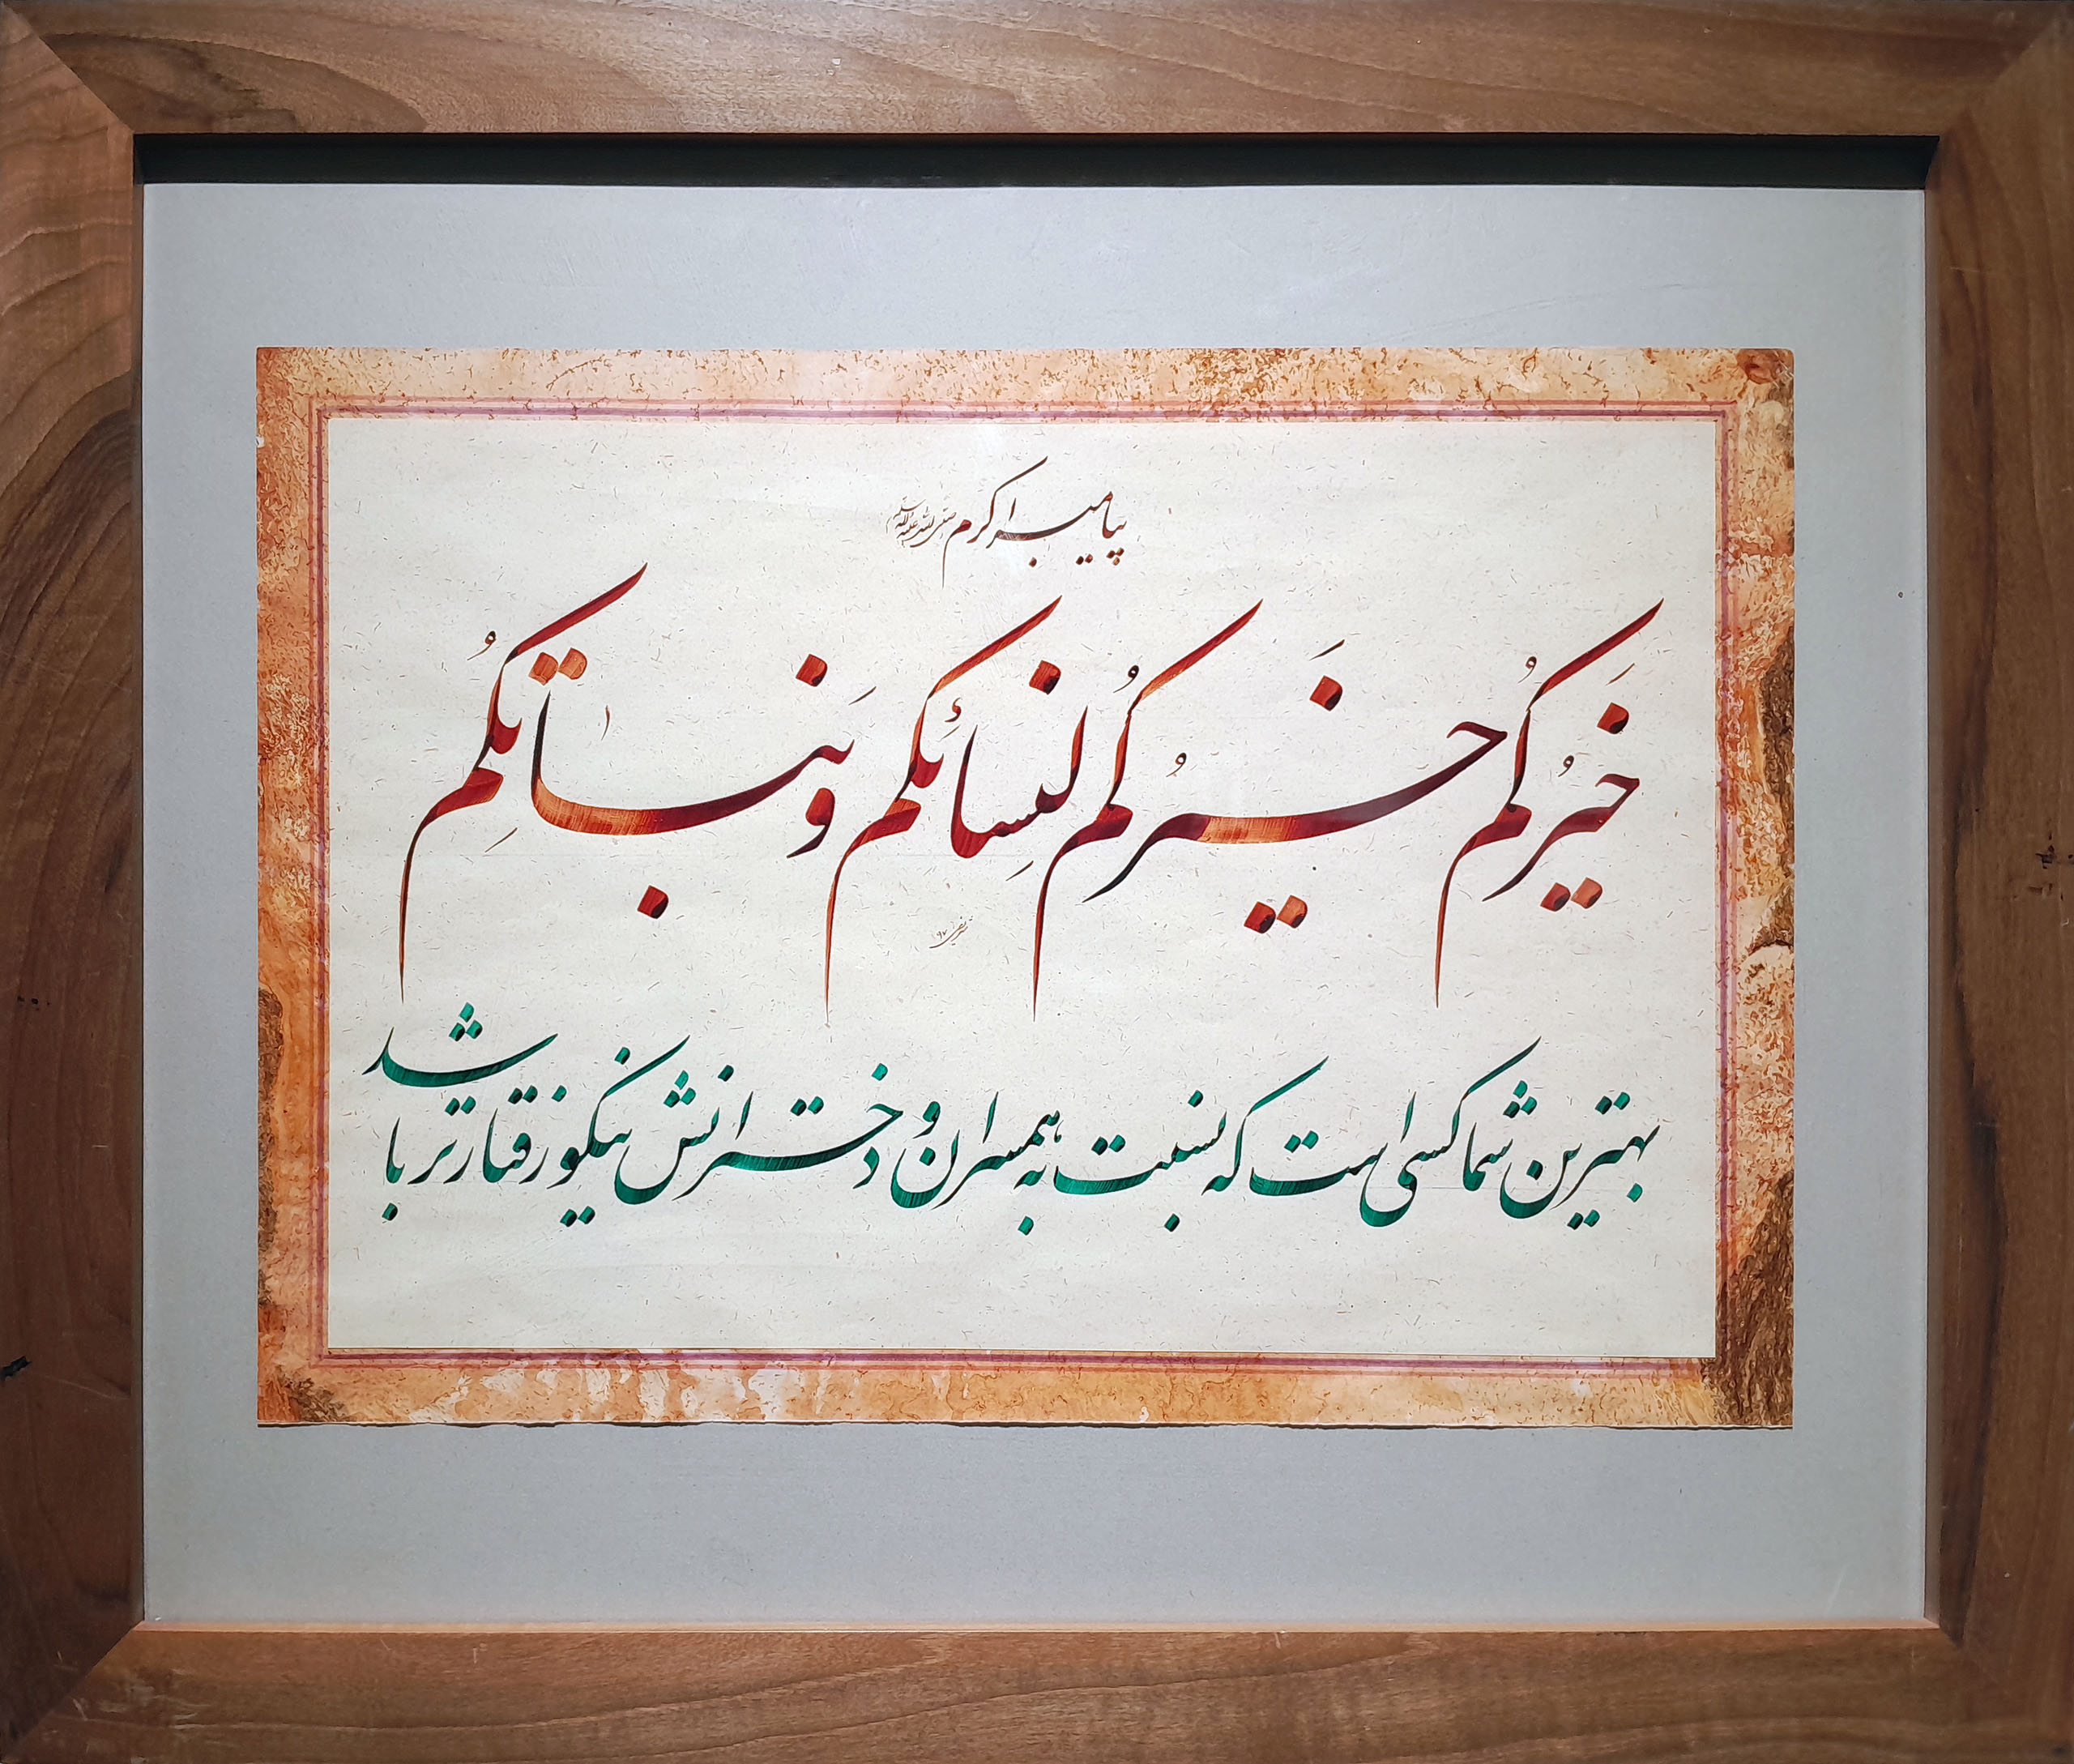 پیامبر اکرم صلی الله علیه و آله وسلم
خَیرُکُم خَیرُکُم لِنِسائِکُم وَ بَناتِکُم
بهترین شما کسی است که نسبت به همسران و دخترانش نیکو رفتارتر باشد